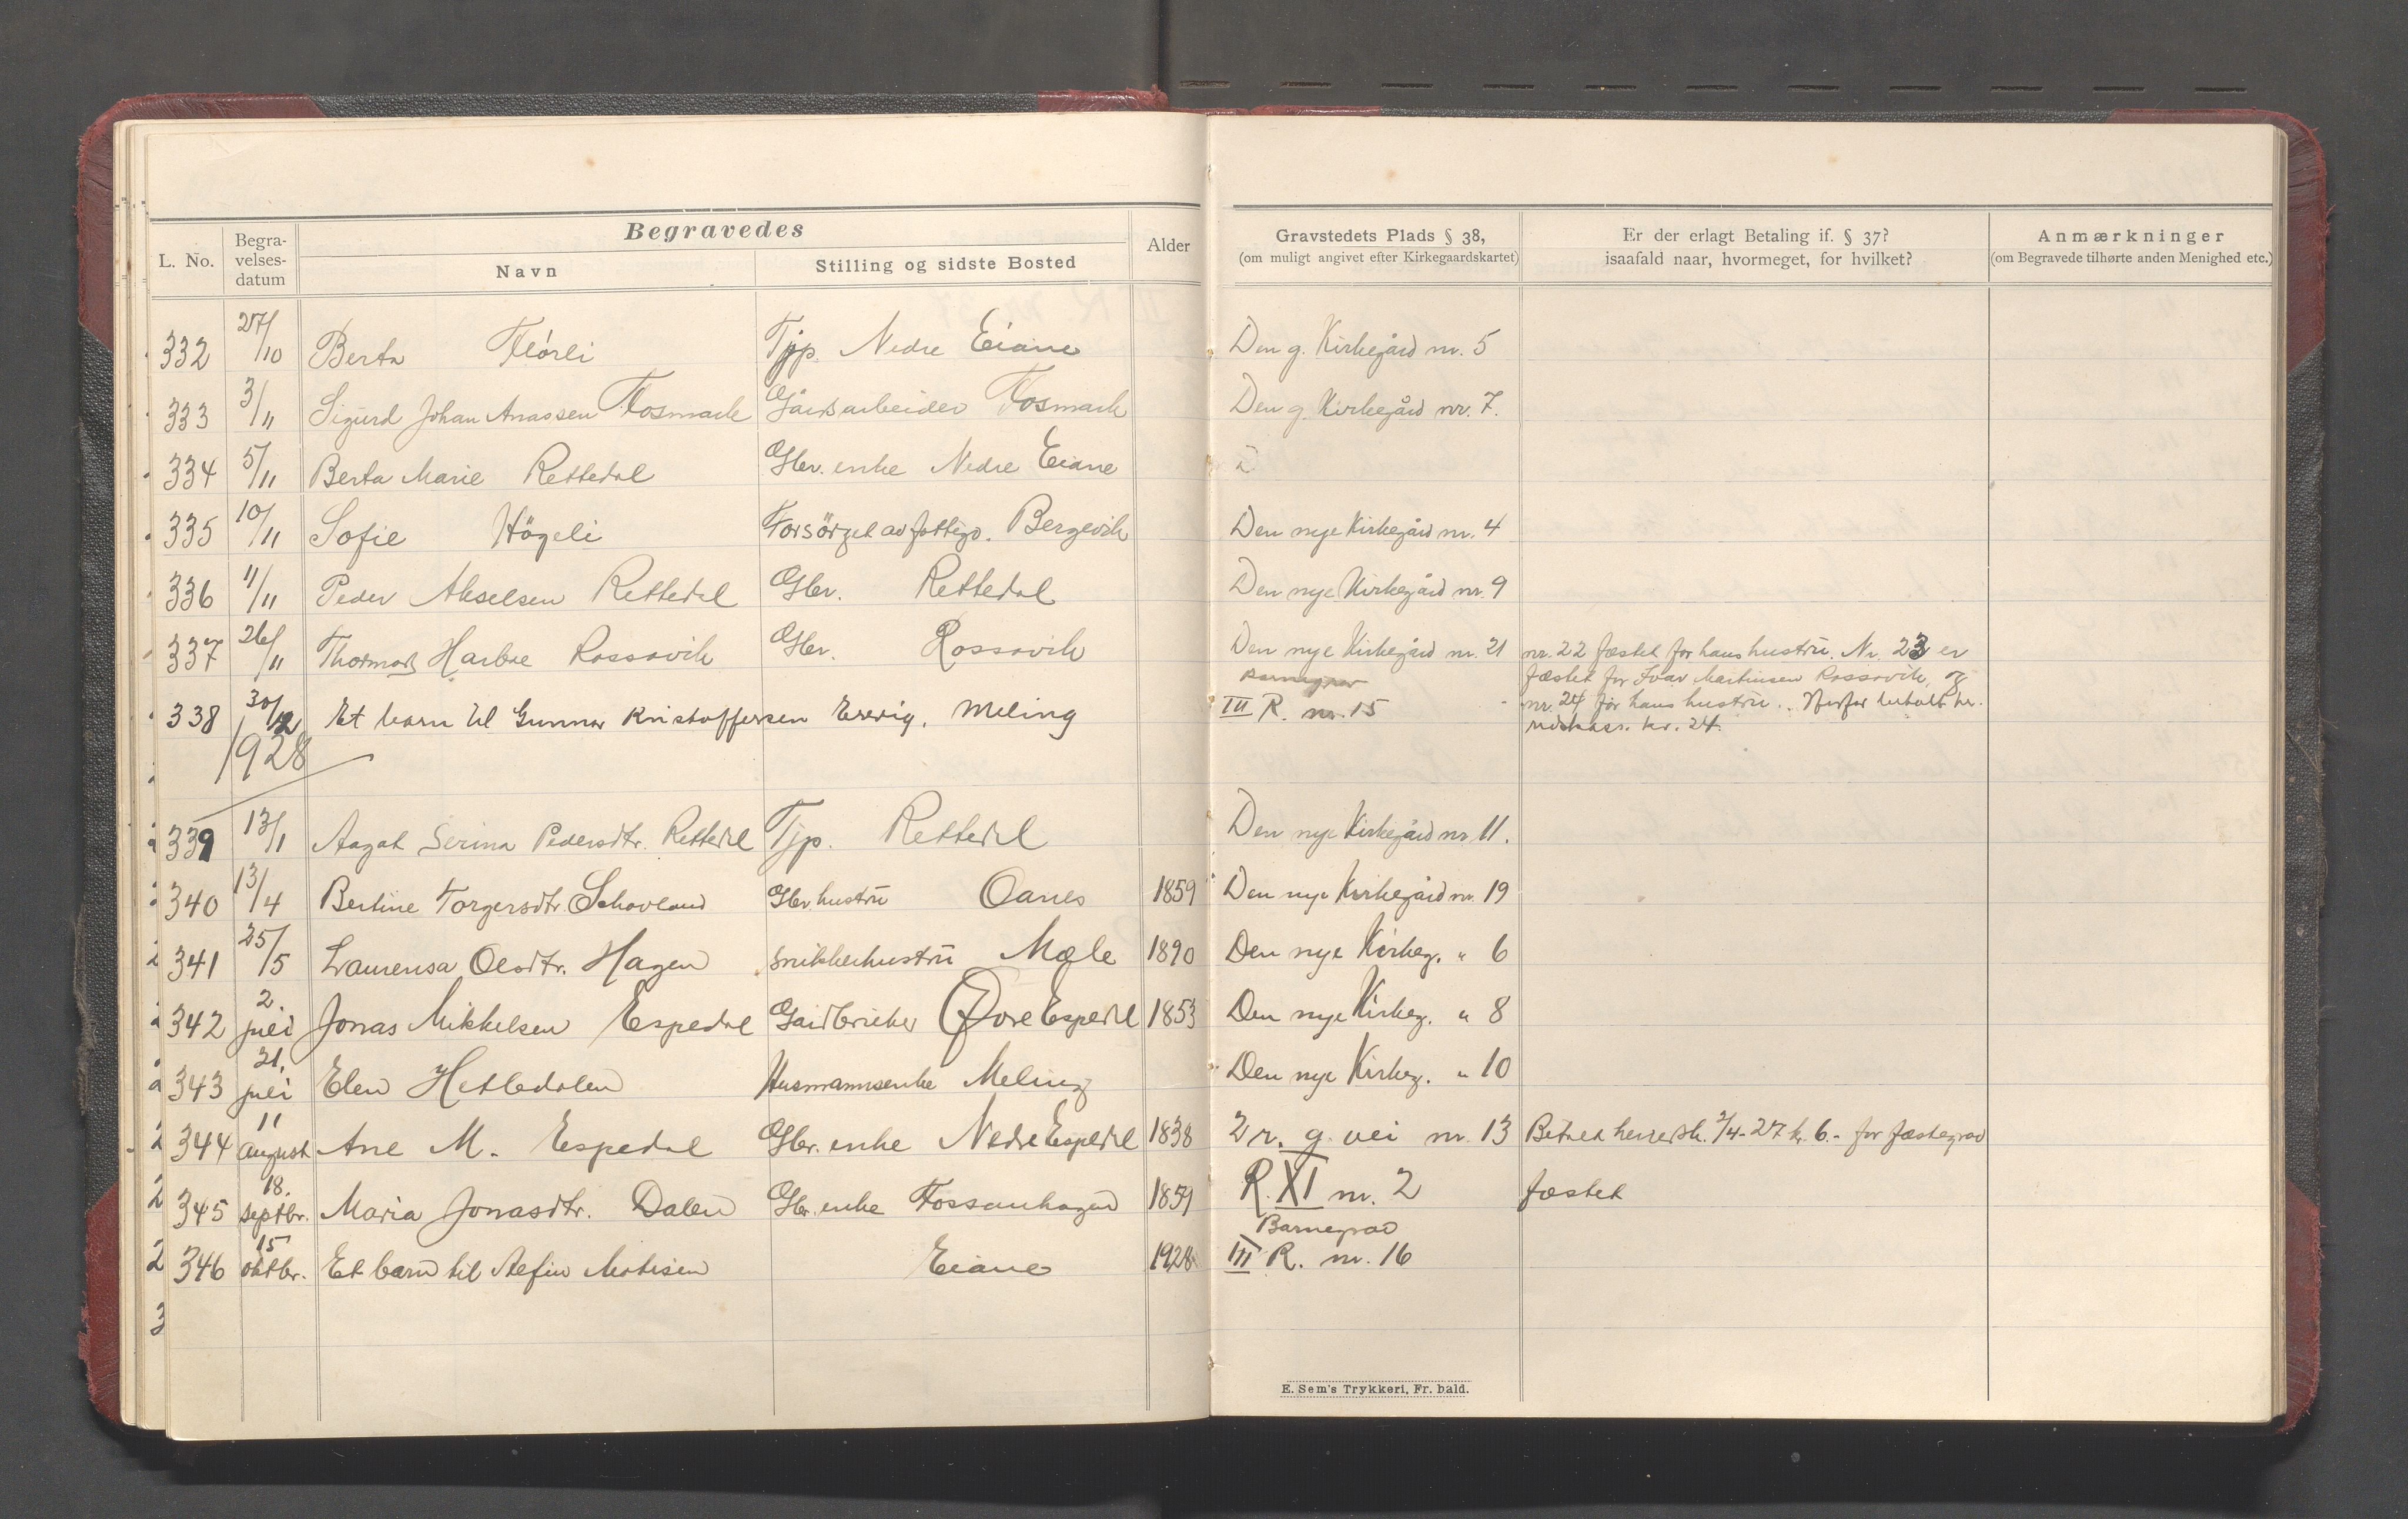 Begravedes
L. No. Begra-velses-datum Navn Stilling og sidste Bosted Alder Gravstedets Plads § 38, (om muligt angivet efter Kirkegaardskartet) Er der erlagt Betaling if. § 37? isaafald naar, hvormeget, for hvilket? Anmærkninger (om Begravede tilhørte anden Menighed etc.)
332 27/10 Berta Flörli Tjp. Nedre Eiane Den g. Kirkegård nr. 5
333 3/11 Sigurd Johan Anassen Fosmark Gårdsarbeider Fosmark Den g. Kirkegård nr. 7.
334 5/11 Berta Marie Rettedal Gbr. enke Nedre Eiane
335 10/11 Sofie Högeli Forsörget av fattigv. Bergevik Den nye Kirkegård nr. 4
336 11/11 Peder Akselsen Rettedal Gbr. Rettedal Den nye Kirkegård nr. 9
337 26/11 Thormod Harboe Rossavik Gbr. Rossavik Den nye Kirkegård nr. 21 nr. 22 fæstet for hans hustru. Nr. 23 er
fæstet for Ivar Martinsen Rossavik, og
Barnegrav
338 30/12 Et barn til Gunnar Kristoffersen Ererig. Meling III R. nr. 15 nr. 24 for hans hustru. Herfor betalt he-
redskass. kr. 24.
1928
339 13/1 Aagot Serina Pedersdtr. Rettedal Tjp. Rettedal Den nye Kirkegård nr. 11.
340 13/4 Bertine Torgersdtr. Schovland Gbr hustru Oanes 1859 Den nye Kirkegård nr. 19
341 25/5 Laurensa Olsdtr. Hagen Snikkerhustru Mæle 1890 Den nye Kirkeg. " 6
342 2. juli Jonas Mikkelsen Espedal Gårdbruker Øvre Espedal 1853 Den nye Kirkeg. " 8
343 21. juli Elen Hetledalen Husmannsenke Meling Den nye Kirkeg. " 10
344 11 august Ane M. Espedal Gbr. enke Nedre Espedal 1838 2 r. g. vei nr. 13 Betalt herredsk. 2/4-27 kr. 6.- for fæstegrav
345 18. septbr. Maria Jonasdtr. Dalen Gbr. enke Fossanhagen 1859 R. XI nr. 2 fæstet
Barnegrav
346 15 oktbr. Et barn til Alfin Matisen Eiane 1928 III R. nr. 16
E. Sem's Trykkeri, Fr. hald.